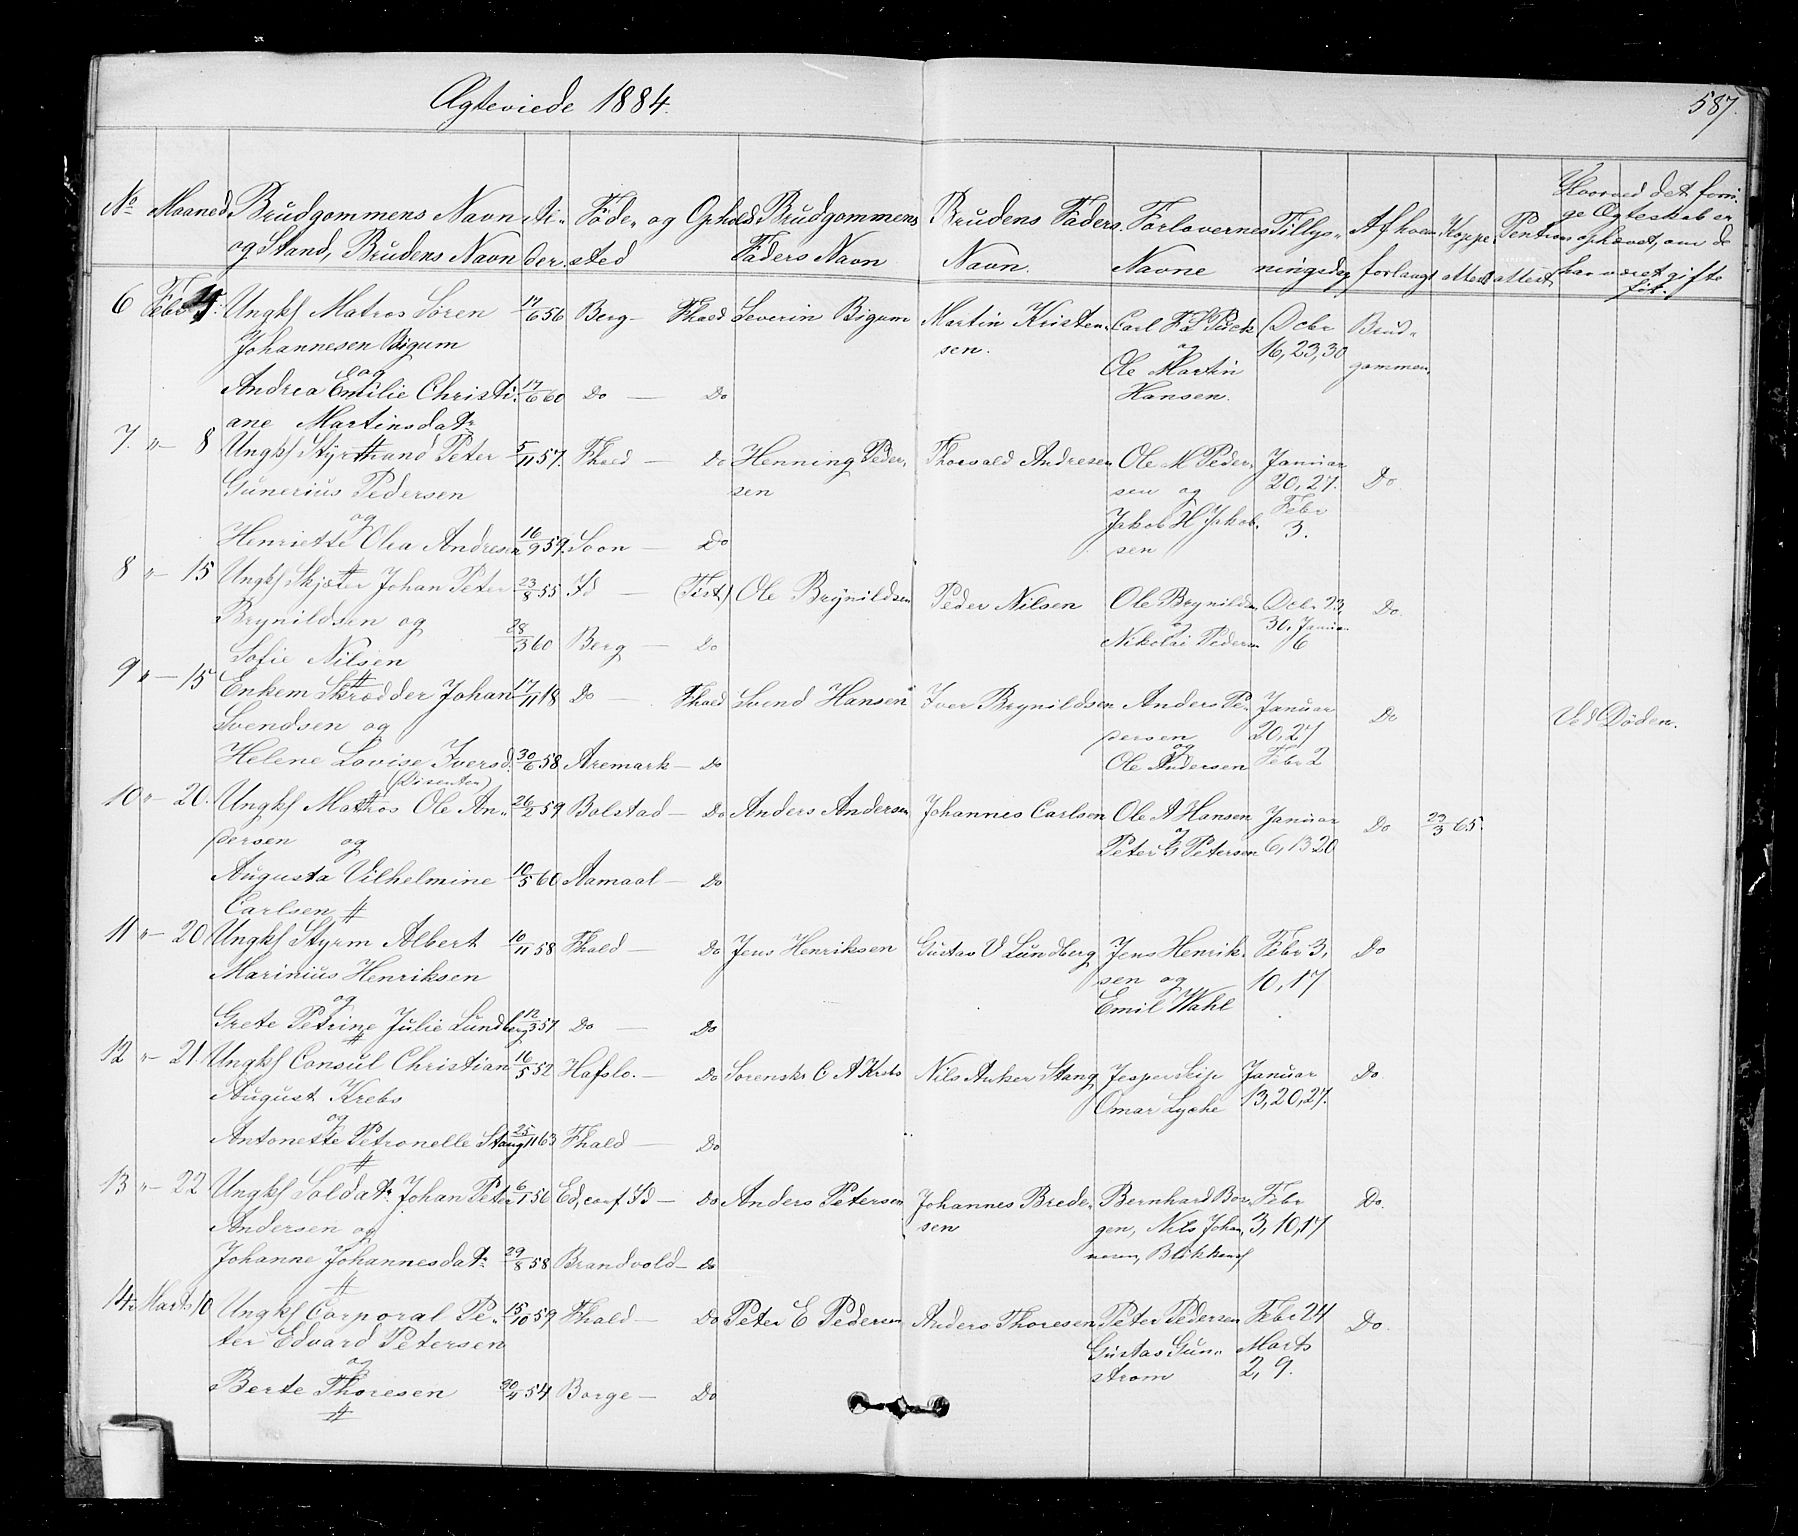 Ægteviede 1884.
587.
No Maaned Brudgommens Navn og Stand, Brudens Navn Alder. Føde- og Opholdssted Brudgommens Faders Navn Brudens Faders Navn. Forlovernes Navne Tillysningsdag Afhvem forlangt Koppeattest Pentionsattest Hvorved det forrige Ægteskab er ophævet, om de har været gifte før.
6 Febr Ungkl Matros Sören 14/6 56 Berg - Fhald Severin Bigum Martin Kristen- Carl F. Beck Dcbr Brud-
Johannesen Bigum sen. og 16, 23, 30 gommen
og Ole Martin
Andrea Emilie Christi- 14/6 60 Do - Do Hansen.
ane Martinsdatr
7. " - 8 Ungkl Styrmand Peter 5/11 57. Fhald - Do Henning Peder- Thorvald Andresen Ole M Peder- Januar Do.
Gunerius Pedersen sen sen og 20, 27.
og Jakob H Jakob- Febr
Henriette Olea Andresen 16/9 59. Soon - Do sen 3.
8 " - 15 Ungkl Skjøter Johan Peter 23/8 55 Id - (Tist) Ole Brynildsen Peder Nilsen Ole Brynilds Dcbr 23, Do
Brynildsen og og 30, Januar
Sofie Nilsen 28/3 60 Berg - Do Nikolai Pedersen 6
9 " - 15 Enkem Skrædder Johan 17/11 18 Do - Fhald Svend Hansen Iver Brynildsen Anders Pe- Januar Do Ved Døden.
Svendsen og dersen 20, 27
Helene Lovise Iversd. 30/6 58 Aremark - Do og Ole Andersen Febr 2
(Disenter)
10 " - 20. Ungkl Matros Ole An- 26/2 59 Bolstad - Do Anders Andersen Johannes Carlsen Ole A Hansen Januar Do 29/3 65.
dersen og og Peter G Petersen 6, 13 20
Augusta Vilhelmine 10/5 60 Aamaal - Do
Carlsen
11 " - 20 Ungkl Styrm Albert 10/11 58 Fhald - Do Jens Henriksen Gustav V Lundberg Jens Henrik- Febr 3, Do
Marinius Henriksen sen og 10, 17
og Emil Wahl
Grete Petrine Julie Lundberg 12/3 57 Do - Do
12 " - 21. Ungkl Consul Christian 16/5 52 Hafslo. - Do Sorenskr C A Krebs Nils Anker Stang Jesper Januar Do
August Krebs Omar Lyche 13, 20, 27.
og
Antonette Petronelle Stang 25/11 63 Fhald - Do
13 " - 22 Ungkl Soldatr Johan Peter 6/1 56 Ed, conf. Id - Do Anders Petersen Johannes Brede- Bernhard Bor- Febr Do.
Andersen og sen gen, Nils Johan- 3, 10, 17
Johanne Johannesdatr 29/8 58 Brandvold - Do
14. Marts 10 Ungkl Corporal Pe- 15/10 59 Fhald - Do Peter E Pedersen Anders Thoresen Peter Pedersen Febr 24 Do.
ter Edvard Petersen Gustav Gun- Marts
og strøm 2, 9.
Berte Thoresen 30/4 54 Borge - Do